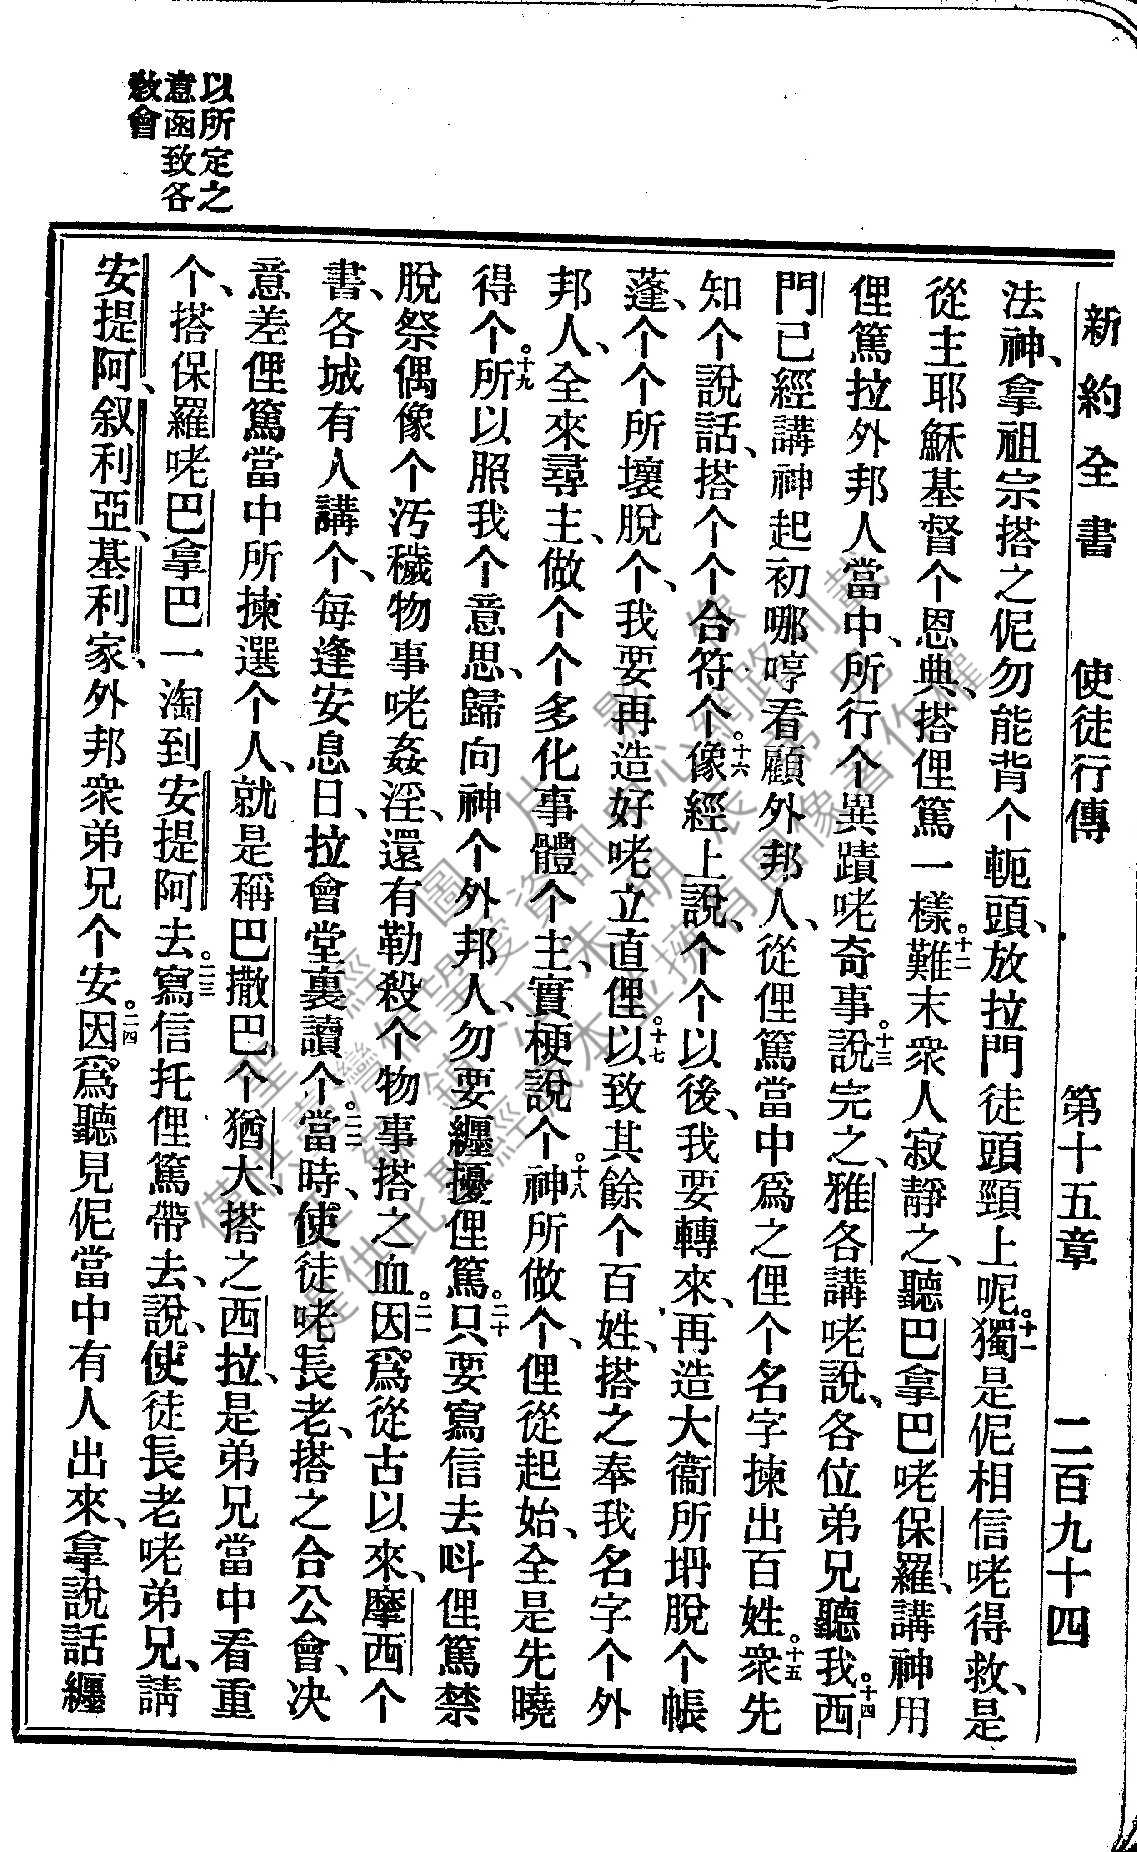 新約全書 使徒行傳 第十五章 二百九十四
法神、拿祖宗搭之伲勿能背个軛頭、放拉門徒頭頸上呢。十一獨是伲相信咾得救、是
從主耶穌基督个恩典、搭俚篤一樣。十二難末衆人寂靜之、聽巴拿巴咾保羅、講神用
俚篤拉外邦人當中、所行个異蹟咾奇事。十三說完之、雅各講咾說、各位弟兄聽我。十四西
門已經講神起初哪哼看顧外邦人、從俚篤當中爲之俚个名字揀出百姓。十五衆先
知个說話、搭个个合符个。十六像經上說、个个以後、我要轉來、再造大衞所坍脫个帳
蓬、个个所壞脫个、我要再造好咾立直俚。十七以致其餘个百姓、搭之奉我名字个外
邦人、全來尋主、做个个多化事體个主、實梗說个。十八神所做个、俚從起始、全是先曉
得个。十九所以照我个意思、歸向神个外邦人、勿要纏擾俚篤。二十只要寫信去呌俚篤禁
脫祭偶像个汚穢物事咾姦淫、還有勒殺个物事搭之血。二一因爲從古以來、摩西个
書、各城有人講个、每逢安息日、拉會堂裏讀个。二二當時、使徒咾長老、搭之合公會、决
意差俚篤當中所揀選个人、就是稱巴撒巴个猶大、搭之西拉、是弟兄當中看重
个、搭保羅咾巴拿巴一淘到安提阿去。二三寫信托俚篤帶去、說、使徒長老咾弟兄、請
安提阿、叙利亞、基利家外邦衆弟兄个安。二四因爲聽見伲當中有人出來、拿說話纏
以所定之
意函致各
敎會